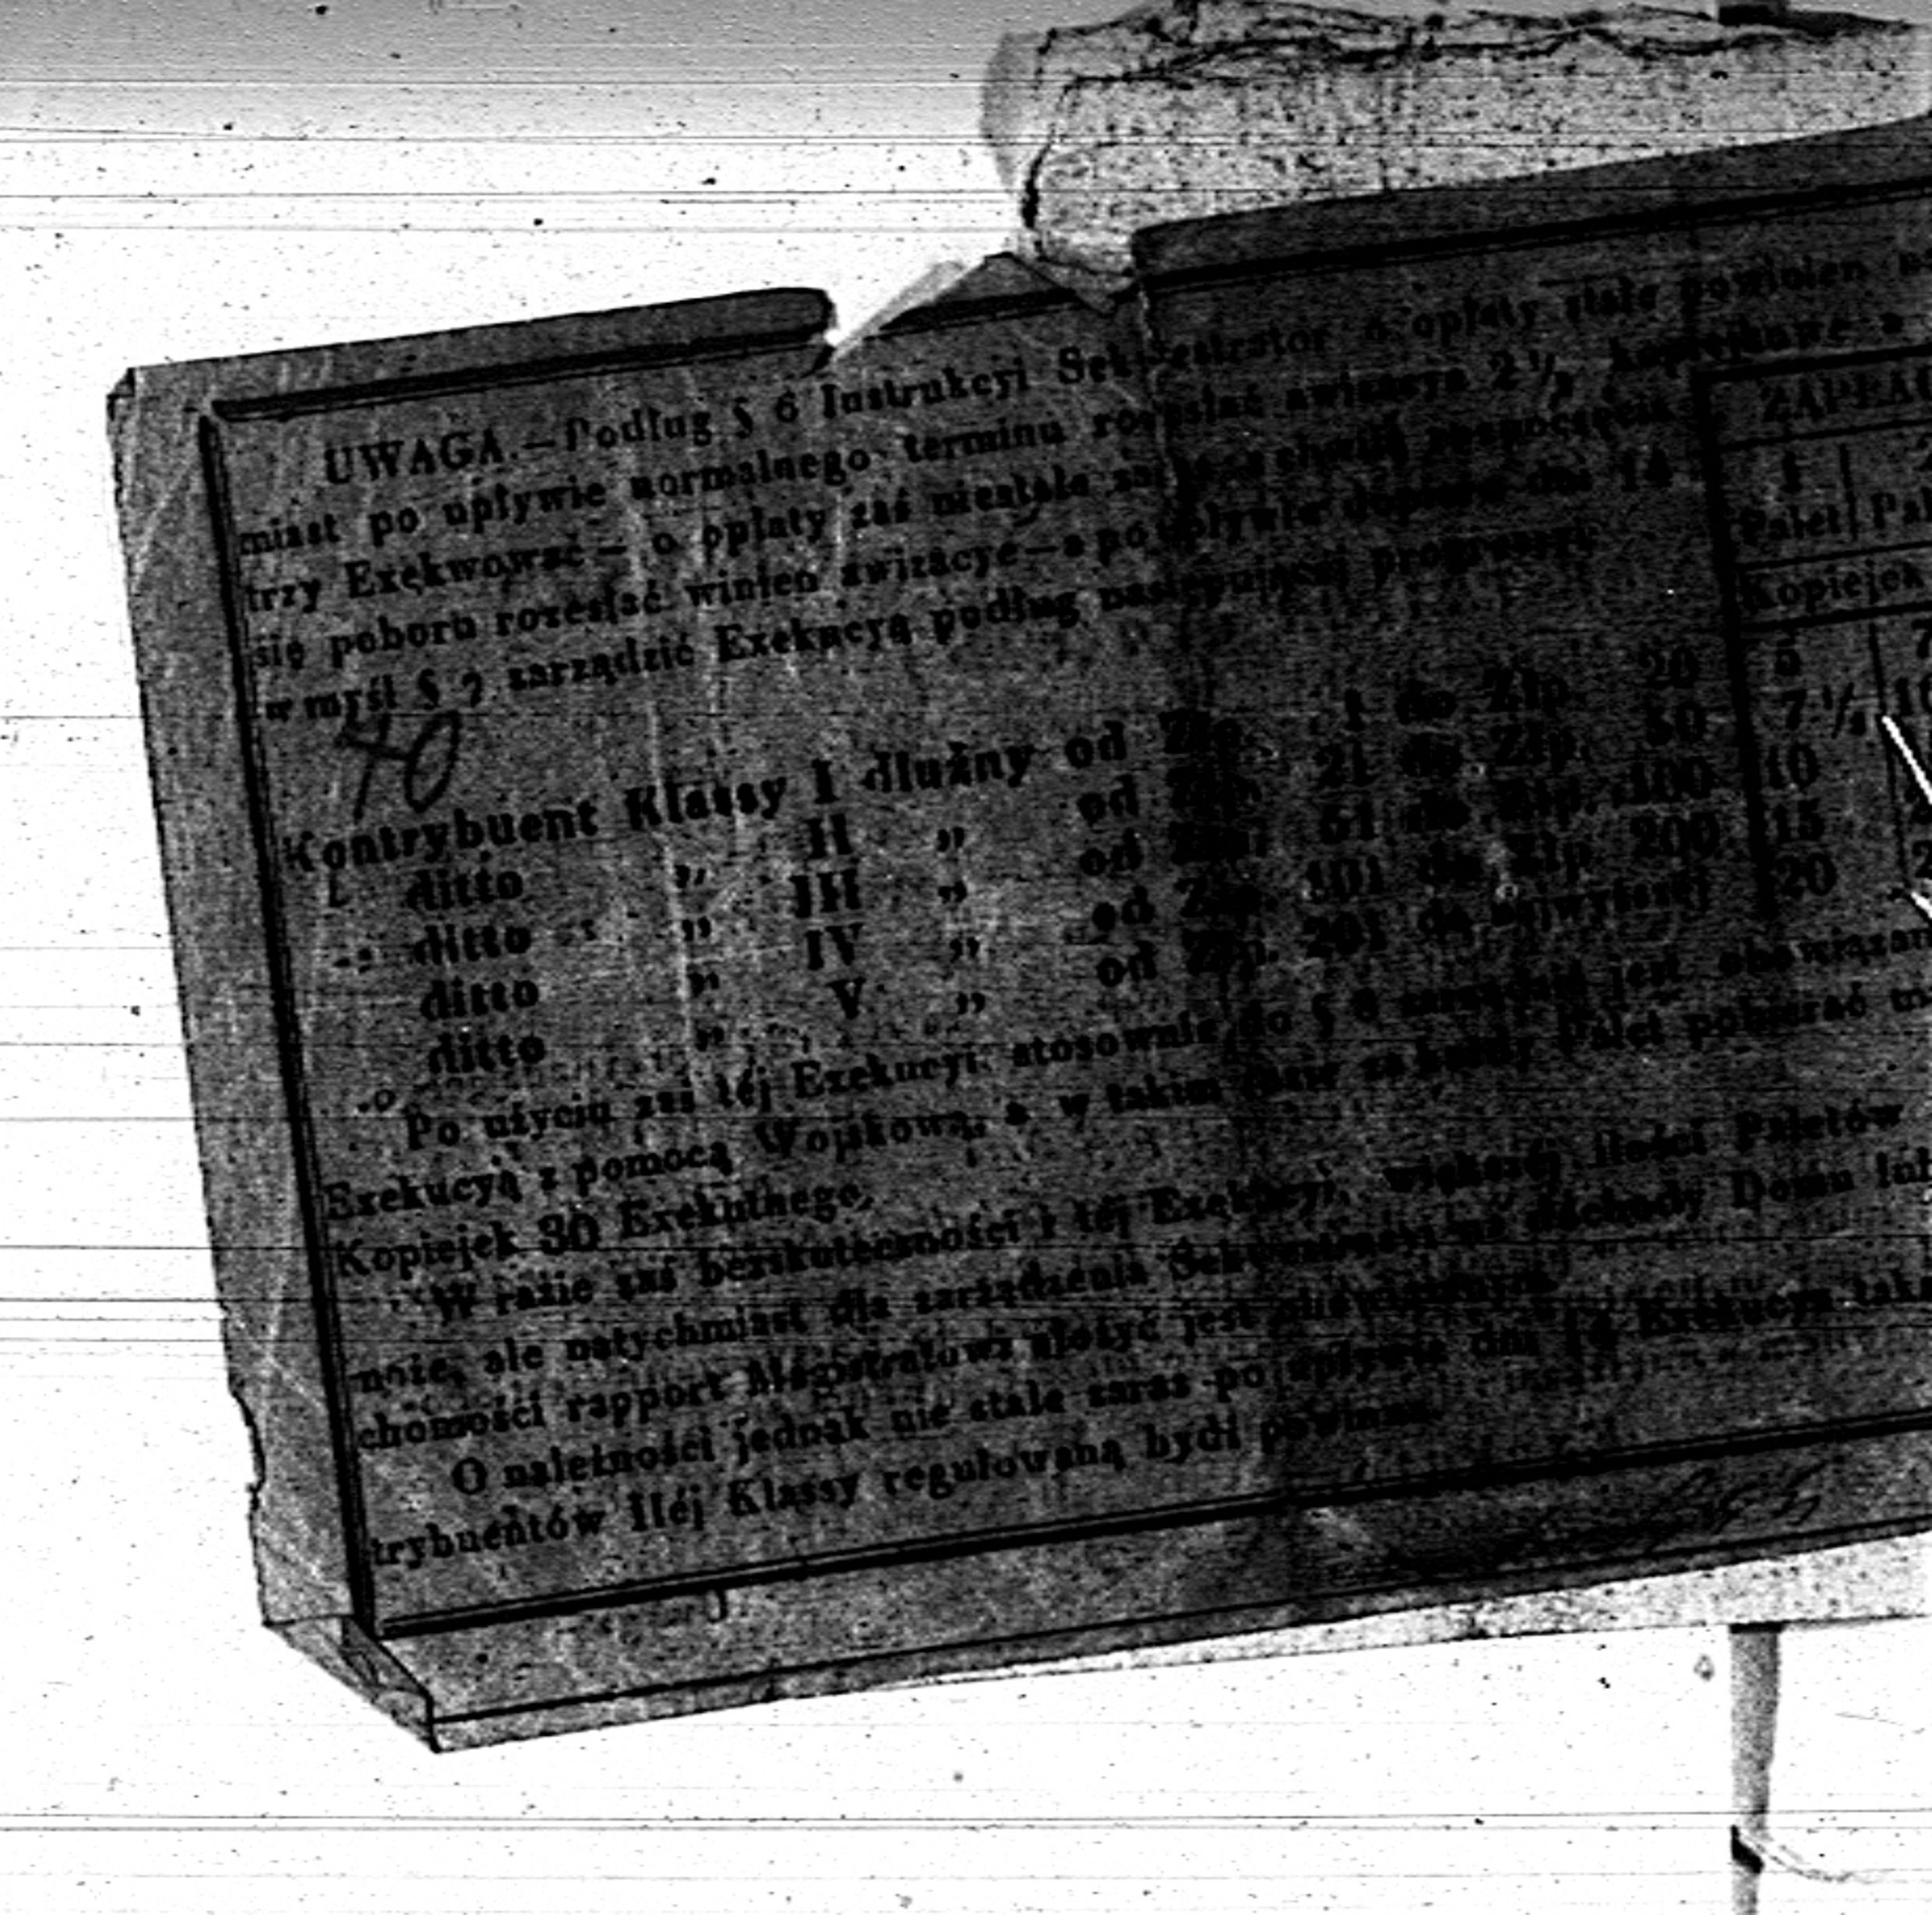 UWAGA.—Podług § 6 Instrukcyi Sekwestrator o opłaty stałe powinien
miast po upływie normalnego terminu rozesłać awizacye 2½ kopiejkowe a
trzy Exekwować— o opłaty zaś niestałe zaraz z chwilą rozpoczęcia
się poboru rozesłać winien awizacye—a po upływie dopiero dni 14
w myśl § 7 zarządzić Exekucyą podług następującej progressyi:
ZAPŁA
1
Palet Pal
Kopiejek
40
Kontrybuent Klassy I dłużny od Złp. 1 do Złp. 20 5 7
ditto „ II „ od Złp. 21 do Złp. 50 7½ 10
ditto „ III „ od Złp. 51 do Złp. 100 10
ditto „ IV „ od Złp. 101 do Złp. 200 15
ditto „ V „ od Złp. 201 do najwyższej 20
Po użyciu zaś téj Exekucyi stosownie do § 8 zarządzić jest obowiązan
Exekucyą z pomocą Wojskową, a w takim razie za każdy Palet pobierać
Kopiejek 30 Exekutnego.
W razie zaś bezskuteczności i téj Exekucyi, większéj ilości Paletów
nie, ale natychmiast dla zarządzenia Sekwestracyi na dochody Domu lub
chomości rapport Magistratowi złożyć jest obowiązanym.
O należności jednak nie stałe zaraz po upływie dni 14 Exekucya tak
trybuentów IIéj Klassy regułowaną bydź powinna.